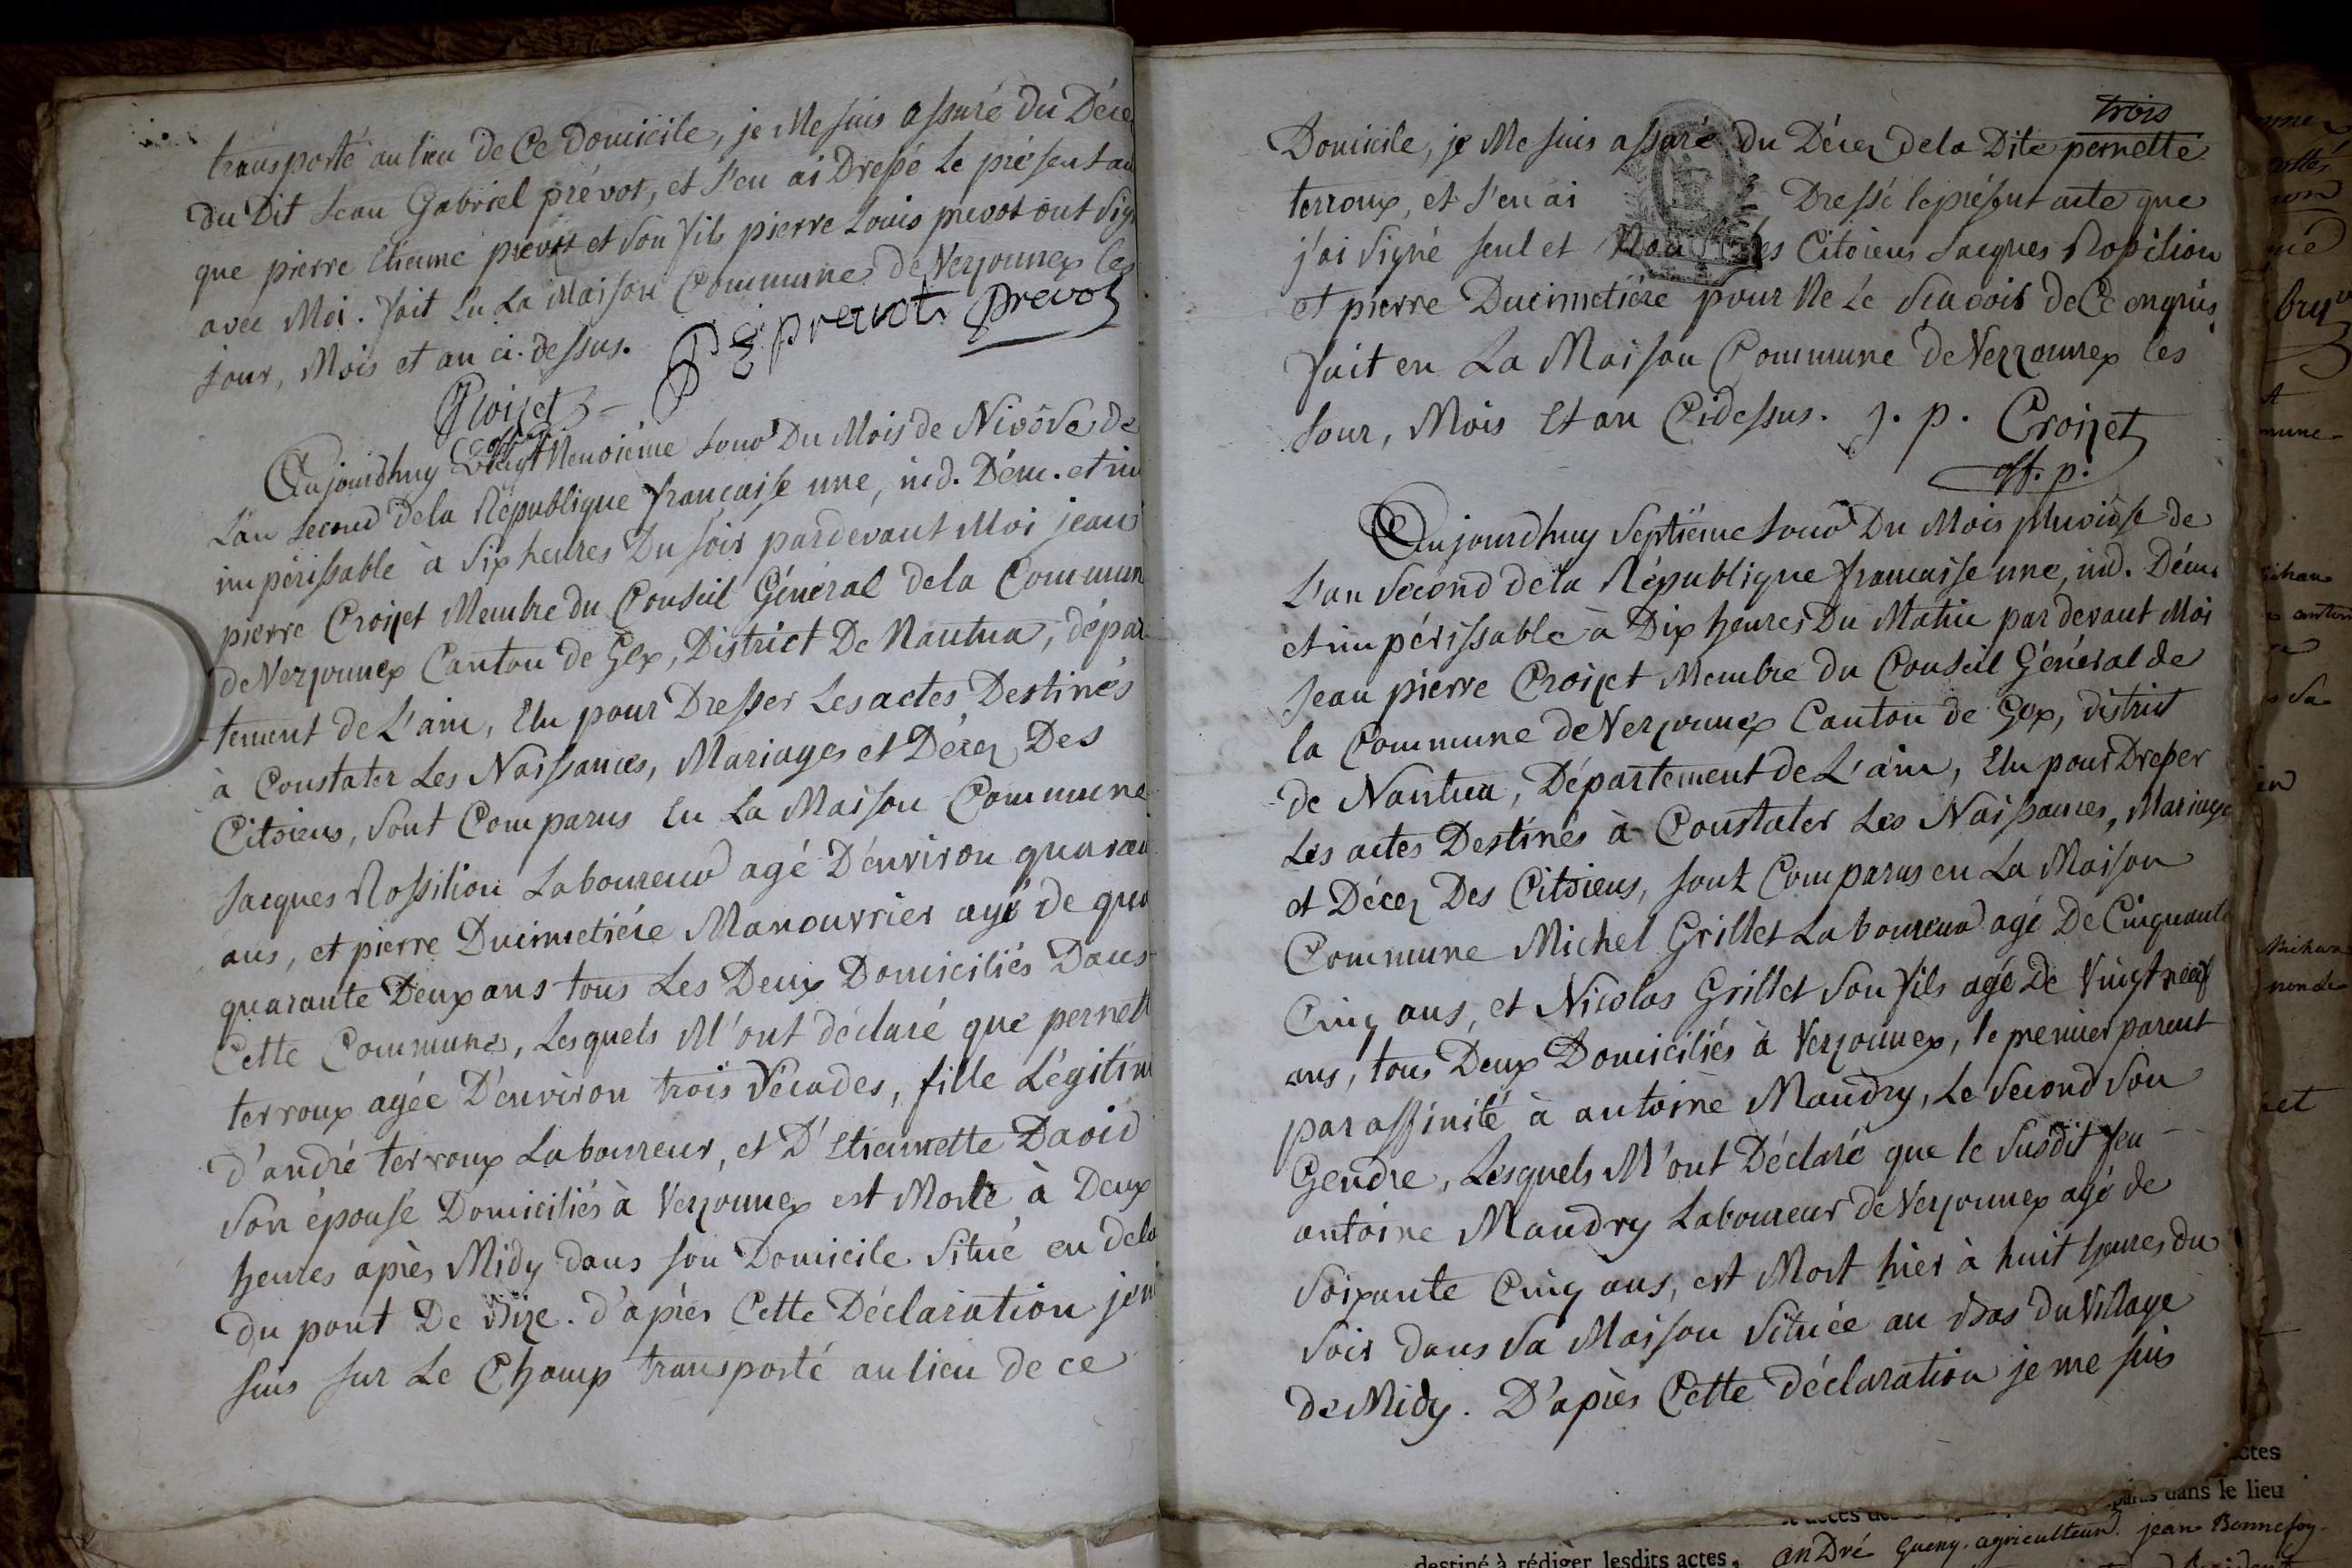 transporté au lieu de Ce Domicile, je Me suis assuré du Décé
du Dit Jean Gabriel prévot, et J'en ai Dressé Le présent
que pierre Etienne prevot et Son fils pierre Louis prevot ont Sig
avec Moi. fait En La Maison Commune de Verzonnex les
jour, Mois et an ci-dessus.
PE prevot prevot
Croizet
off. p.
Aujourdhuy Vingt Neuvième Jour Du Mois de Nivôse de
L'an second de la République française une, ind. Dém. et im
impérissable à Six heures Du soir pardevant Moi jean
pierre Croizet Membre du Conseil Général de la Commun
de Verzonnex Canton de Gex, District De Nantua, dépar
-tement de L'ain, Elu pour Dresser Les actes Destinés
à Constater Les Naissances, Mariages et Décez Des
Citoiens, sont Comparus En La Maison Commune
Jacques Rossilion Laboureur agé D'environ quaran
ans, et pierre Ducimetiére Manouvrier agé de qua
quarante Deux ans tous Les Deux Domiciliés Dans
Cette Commune, Lesquels M'ont déclaré que pernett
terroux agée D'environ trois Décades, fille Légitim
d'andré terroux Laboureur, et D'Etiennette David
Son épouse Domiciliés à Verzonnex est Morte à Deux
heures après Midy dans son Domicile Situé en dela
du pont De Bize. d'après Cette Déclaration je m
suis sur Le Champ transporté au lieu de ce
trois
Domicile, je Me suis assuré du Décez de la Dite pernette
terroux, et J'en ai Dressé le présent acte que
j'ai Signé seul et Non Les Citoiens Jacques Rossilion
et pierre Ducimetiére pour Ne Le Scavoir de Ce enquis
fait en La Maison Commune de Verzonnex les
Jour, Mois Et an Cidessus. J. p. Croizet
off. p.
Aujourdhuy Septiéme Jour Du Mois pluviôse de
L'an Second de la République française une, ind. Dém.
et impérissable à Dix heures Du Matin par devant Moi
Jean pierre Croizet Membre du Conseil Général de
la Commune de Verzonnex Canton de Gex, district
de Nantua, Département de L'ain, Elu pour Dresser
Les actes Destinés à Constater Les Naissances, Mariage
et Décez Des Citoiens, sont Comparus en La Maison
Commune Michel Grillet Laboureur agé De Cinquante
Cinq ans, et Nicolas Grillet Son fils agé De Vingt neuf
ans, tous Deux Domiciliés à Verzonnex, le premier parent
par affinité à antoine Maudry, Le Second Son
Gendre, Lesquels M'ont Déclaré que le Susdit feu
antoine Maudry Laboureur de Verzonnex agé de
Soixante Cinq ans, est Mort hier à huit heures du
Soir dans Sa Maison Située au Bas du Village
de Midy. D'après Cette déclaration je me suis
actes
dans le lieu
destiné à rédiger lesdits actes, anDré Gueny. agriculteur. jean Bonnefoy